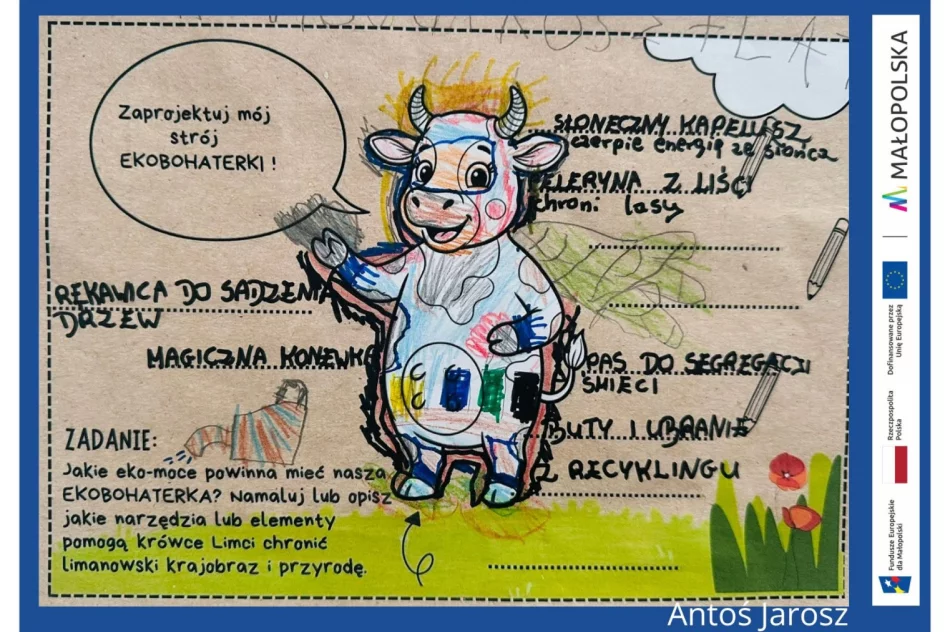 Zaprojektuj mój
strój
EKOBOHATERKI !
SŁONECZNY KAPELUSZ
czerpie energię ze słońca
PELERYNA Z LIŚCI
chroni lasy
RĘKAWICA DO SADZENIA
DRZEW
MAGICZNA KONEWKA
PAS DO SEGREGACJI
ŚMIECI
BUTY I UBRANIE
Z RECYKLINGU
ZADANIE:
Jakie eko-moce powinna mieć nasza
EKOBOHATERKA? Namaluj lub opisz
jakie narzędzia lub elementy
pomogą krówce Limci chronić
limanowski krajobraz i przyrodę.
Antoś Jarosz
MAŁOPOLSKA
Dofinansowane przez
Unię Europejską
Rzeczpospolita
Polska
Fundusze Europejskie
dla Małopolski